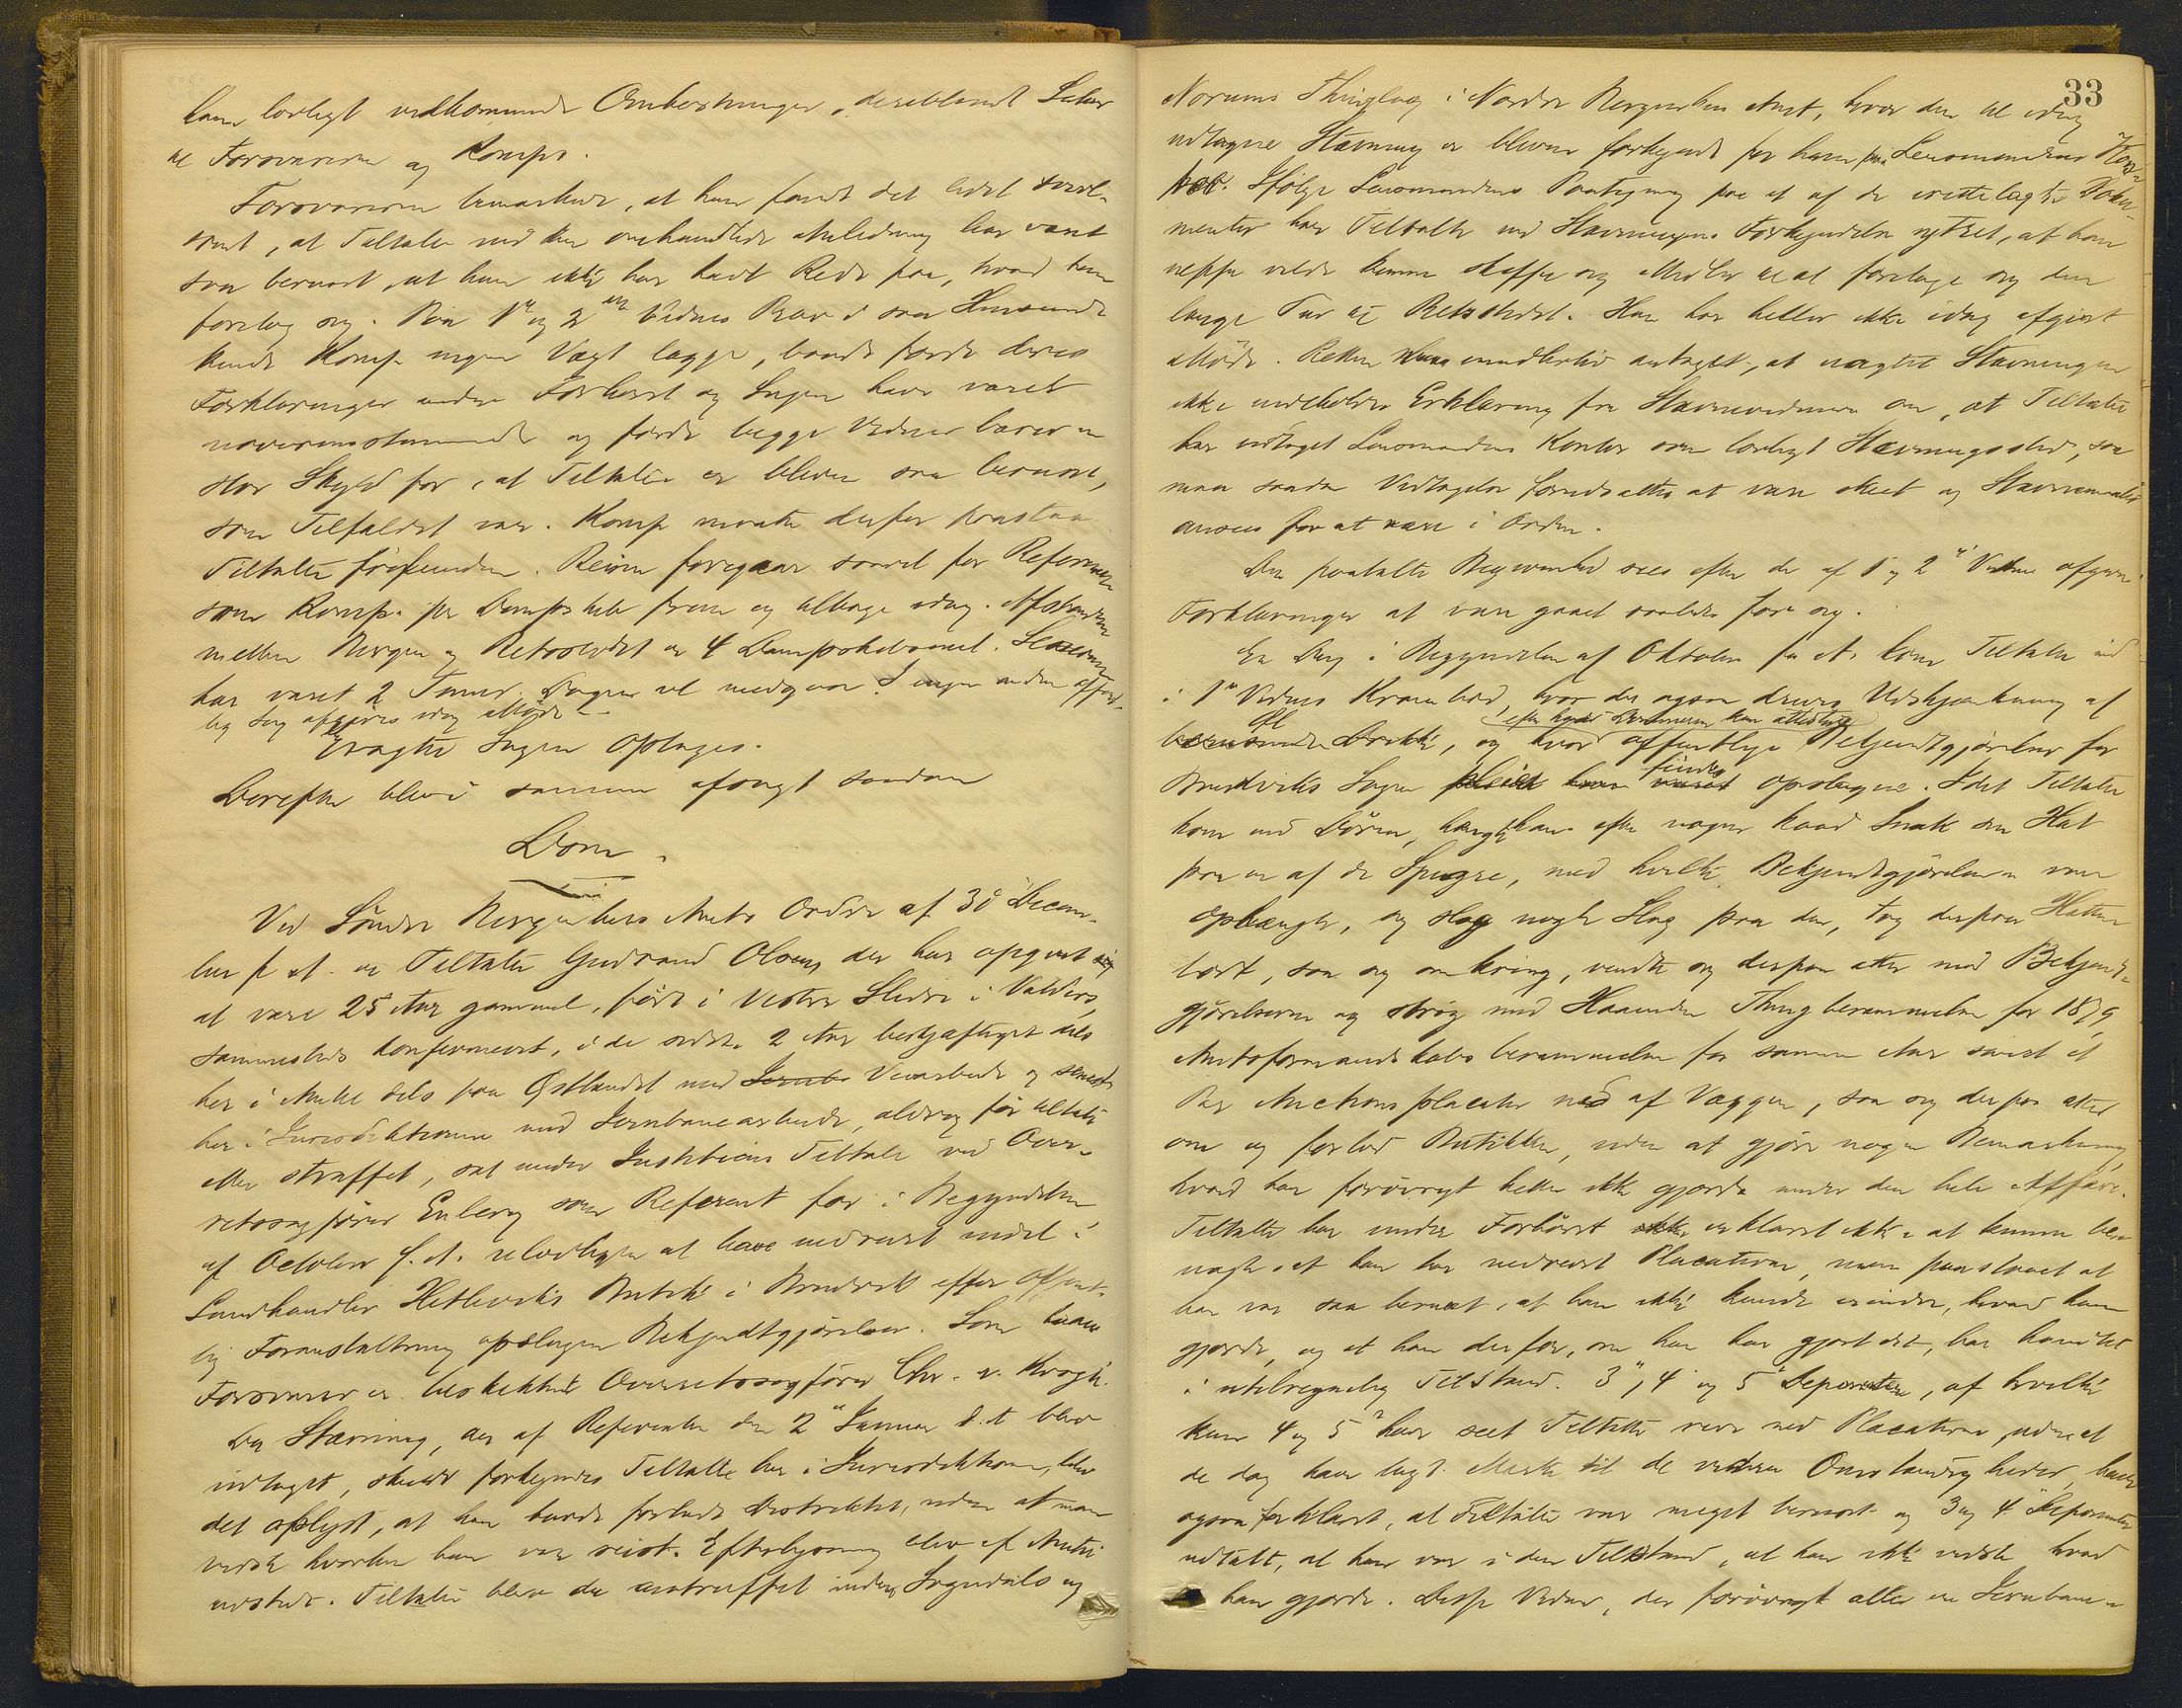 ham lovligt vedkommende Omkostninger, deriblandt Salær
til Forsvareren og Komp.
Forsvareren bemærkede, at han fandt det lidet tvivl-
somt, at Tiltalte ved den omhandlede Anledning har været
saa beruset, at han ikke har havt Rede paa, hvad han
foretog sig. Paa 1ste og 2det Vidnes Prov i saa Henseende
kunde Komp. ingen Vægt lægge, baade fordi deres
Forklaringer under Forhøret og Sagen have været
uoverensstemmende og fordi begge Vidner bærer en
stor Skyld for, at Tiltalte er bleven saa beruset,
som Tilfældet var. Komp. maatte derfor paastaa
Tiltalte frifunden. Reisen foregaar saavel for Referenten
som Komp. pr Dampskib frem og tilbage idag. Afstanden
mellem Bergen og Retsstedet er 4 Dampskibsmil. Sessionen
har varet 2 Timer. Dagen vil medgaa. I ingen anden offent-
lig Sag afgives idag Møde.
Eragtet Sagen optages.
Derefter blev i samme afsagt saadan
Dom.
Ved Søndre Bergenhus Amts Ordre af 30 Decem-
ber f. A. er Tiltalte Gudrand Olsen, der har opgivet sig
at være 25 Aar gammel, født i Vestre Slidre i Valders,
sammesteds konfirmeret, i de sidste 2 Aar beskjæftiget dels
her i Amtet dels paa Østlandet med Veiarbeide og senest
her i Jurisdiktionen med Jernbanearbeide, aldrig før tiltalt
eller straffet, sat under Justitiens Tiltale ved Over-
retssagfører Enberg som Referent for i Begyndelsen
af October f. A. ulovligen at have nedrevet endel i
Landhandler Hetleviks Butik i Bruvik efter offent-
lig Foranstaltning opslagne Bekjendtgjørelser. Som hans
Forsvarer er beskikket Overretssagfører Chr. v. Krogh.
Da Stævning, der af Referenten den 2 Januar d. A. blev
udtaget, skulde forkyndes Tiltalte her i Jurisdiktionen, blev
det oplyst, at han havde forladt Distriktet, uden at man
vidste hvorhen han var reist. Efterlysning blev af Amtet
udstedt. Tiltalte blev da antruffet inden Sogndals og
33
Norums Thinglag i Nordre Bergenhus Amt, hvor den til idag
udtagne Stævning er bleven forkyndt for ham paa Lensmandens Kon-
tor. Ifølge Lensmandens Paategning paa et af de irettelagte Doku-
menter har Tiltalte ved Stævningens Forkyndelse ytret, at han
neppe vilde kunne skaffe sig Midler til at foretage sig den
lange Tur til Retsstedet. Han har heller ikke idag afgivet
Møde. Retten har imidlertid antaget, at uagtet Stævningen
ikke indeholder Erklæring fra Stævnevidnerne om, at Tiltalte
har vedtaget Lensmandens Kontor som lovligt Stævningssted, saa
maa saadan Vedtagelse forudsættes at være skeet og Stævnemaalet
ansees for at være i Orden.
Den paatalte Begivenhed sees efter de af 1 og 2 Vidne afgivne
Forklaringer at være gaaet saaledes for sig.
En Dag i Begyndelsen af Oktober f. A. kom Tiltalte ind
i 1ste Vidnes Krambod, hvor der ogsaa drives Udskjænkning af
Øl
efter hvad Dommeren kan attestere
berusende Drikke, og hvor offentlige Bekjendtgjørelser for
findes
Bruviks Sogn pleier have været opslagne. Idet Tiltalte
kom ind Døren, hængte han efter nogen kaad Snak sin Hat
paa en af de Spigre, med hvilke Bekjendtgjørelserne vare
ophængte, og slog nogle Slag paa den, tog derpaa Hatten
bort, saa sig omkring, vendte sig derpaa atter mod Bekjendt-
gjørelserne og strøg med Haanden Thingberammelsen for 1879,
Amtsformandskabs berammelse for samme Aar samt et
Par Auctionsplacater ned af Væggen, saa sig derpaa atter
om og forlod Butikken, uden at gjøre nogen Bemærkning,
hvad han forøvrigt heller ikke gjorde under den hele Affære.
Tiltalte har under Forhøret erklæret ikke at kunne be-
nægte at han har nedrevet Placaterne, men paastaaet at
han var saa beruset, at han ikke kunde erindre, hvad han
gjorde, og at han derfor, om han har gjort det, har handlet
i utilregnelig Tilstand. 3, 4 og 5 Deponenter, af hvilke
kun 4 og 5 have seet Tiltalte rive ned Placaterne, uden at
de dog have lagt Mærke til de nærmere Omstændigheder, have
ogsaa forklaret, at Tiltalte var meget beruset og 3 og 4 Deponenter
udtalt, at han var i den Tilstand, at han ikke vidste hvad
han gjorde. Disse Vidner, der forøvrigt alle ere Jernbane-